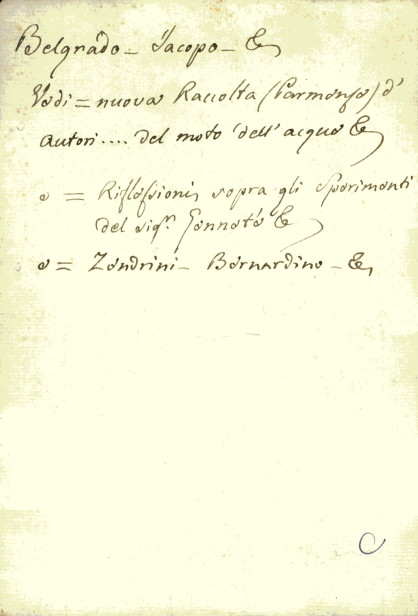 Belgrado - Jacopo - &
Vedi = nuova Raccolta (Parmense) d'
autori .... del moto dell'acqua &
e = Riflessioni sopra gli Sperimenti
del sigr. Gennetè &
e = Zendrini - Bernardino - &